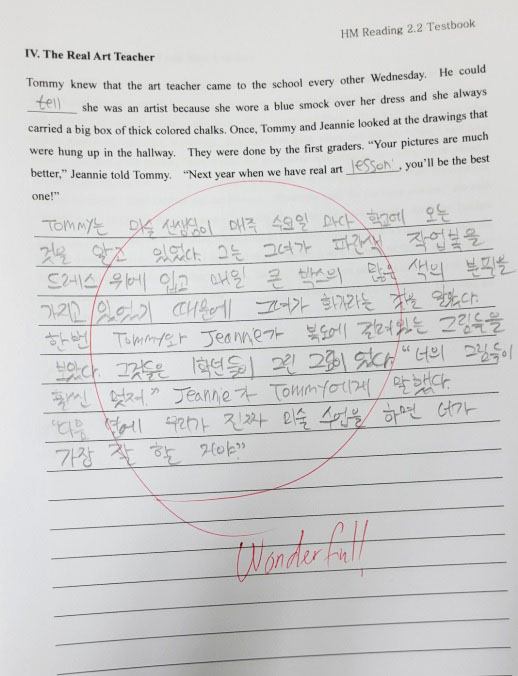 HM Reading 2.2 Testbook
IV. The Real Art Teacher
Tommy knew that the art teacher came to the school every other Wednesday. He could
tell she was an artist because she wore a blue smock over her dress and she always
carried a big box of thick colored chalks. Once, Tommy and Jeannie looked at the drawings that
were hung up in the hallway. They were done by the first graders. “Your pictures are much
better,” Jeannie told Tommy. “Next year when we have real art lesson, you’ll be the best
one!”
Tommy는 미술 선생님이 매주 수요일 마다 학교에 오는
것을 알고 있었다. 그는 그녀가 파란색 작업복을
드레스 위에 입고 매일 큰 박스의 많은 색의 분필을
가지고 있었기 때문에 그녀가 화가라는 것을 알았다.
한번 Tommy와 Jeanne가 복도에 걸려있는 그림들을
보았다. 그것들은 1학년들이 그린 그림이 있다. “너의 그림들이
훨씬 멋져.” Jeannie가 Tommy에게 말했다.
“다음 년에 우리가 진짜 미술 수업을 하면 너가
가장 잘 할 거야.”
Wonderful!